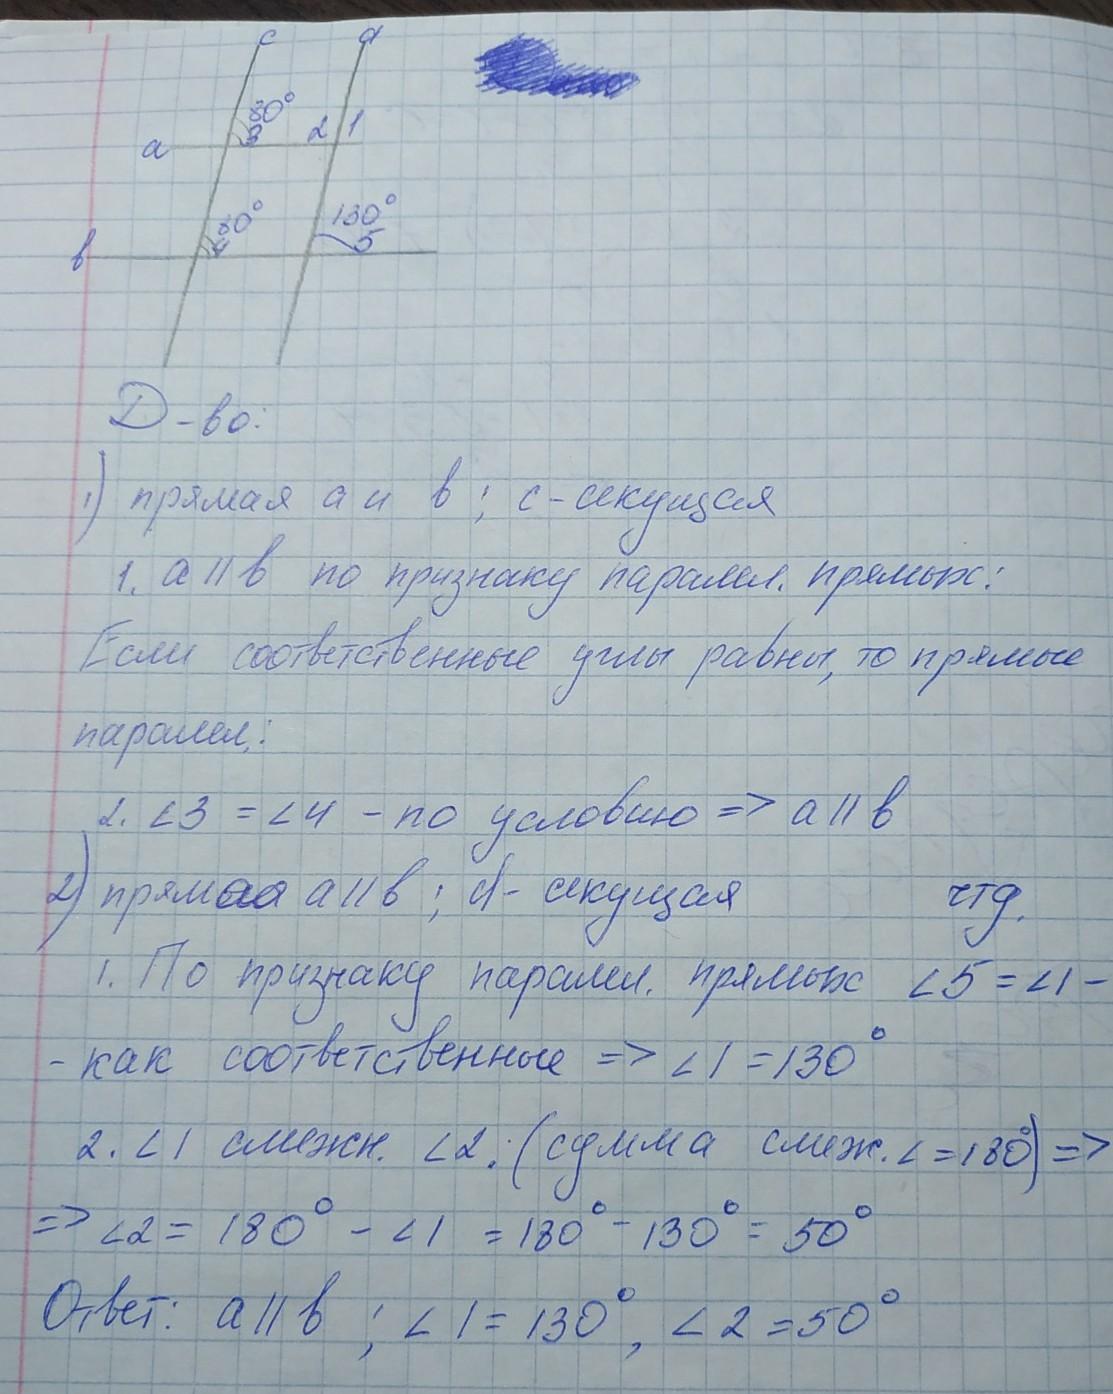 c d
80°
3 2 1
a
80° 130°
4 5
в
Д-во:
1) прямая a и в ; c-секущая
1. a || в по признаку паралл. прямых:
Если соответственные углы равны, то прямые
паралл.:
2. ∠3 = ∠4 - по условию => a || в
2) прямая a || в ; d- секущая чтд.
1. По признаку паралл. прямых ∠5 = ∠1 -
- как соответственные => ∠1 = 130°
2. ∠1 смежн. ∠2: (сумма смеж. ∠ = 180°) =>
=> ∠2 = 180° - ∠1 = 180° - 130° = 50°
Ответ: a || в ; ∠1 = 130°, ∠2 = 50°